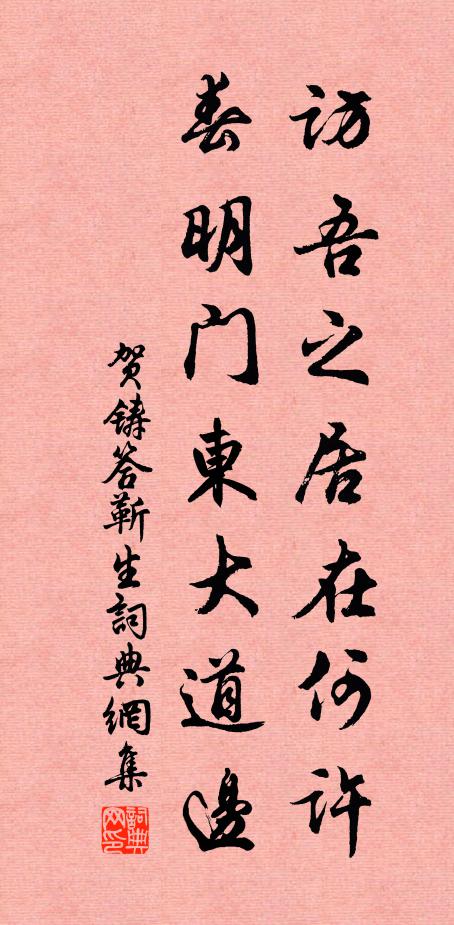 访吾之居在何许
春明门東大道邊
贺鋳答靳生詞典網集
詞典网印